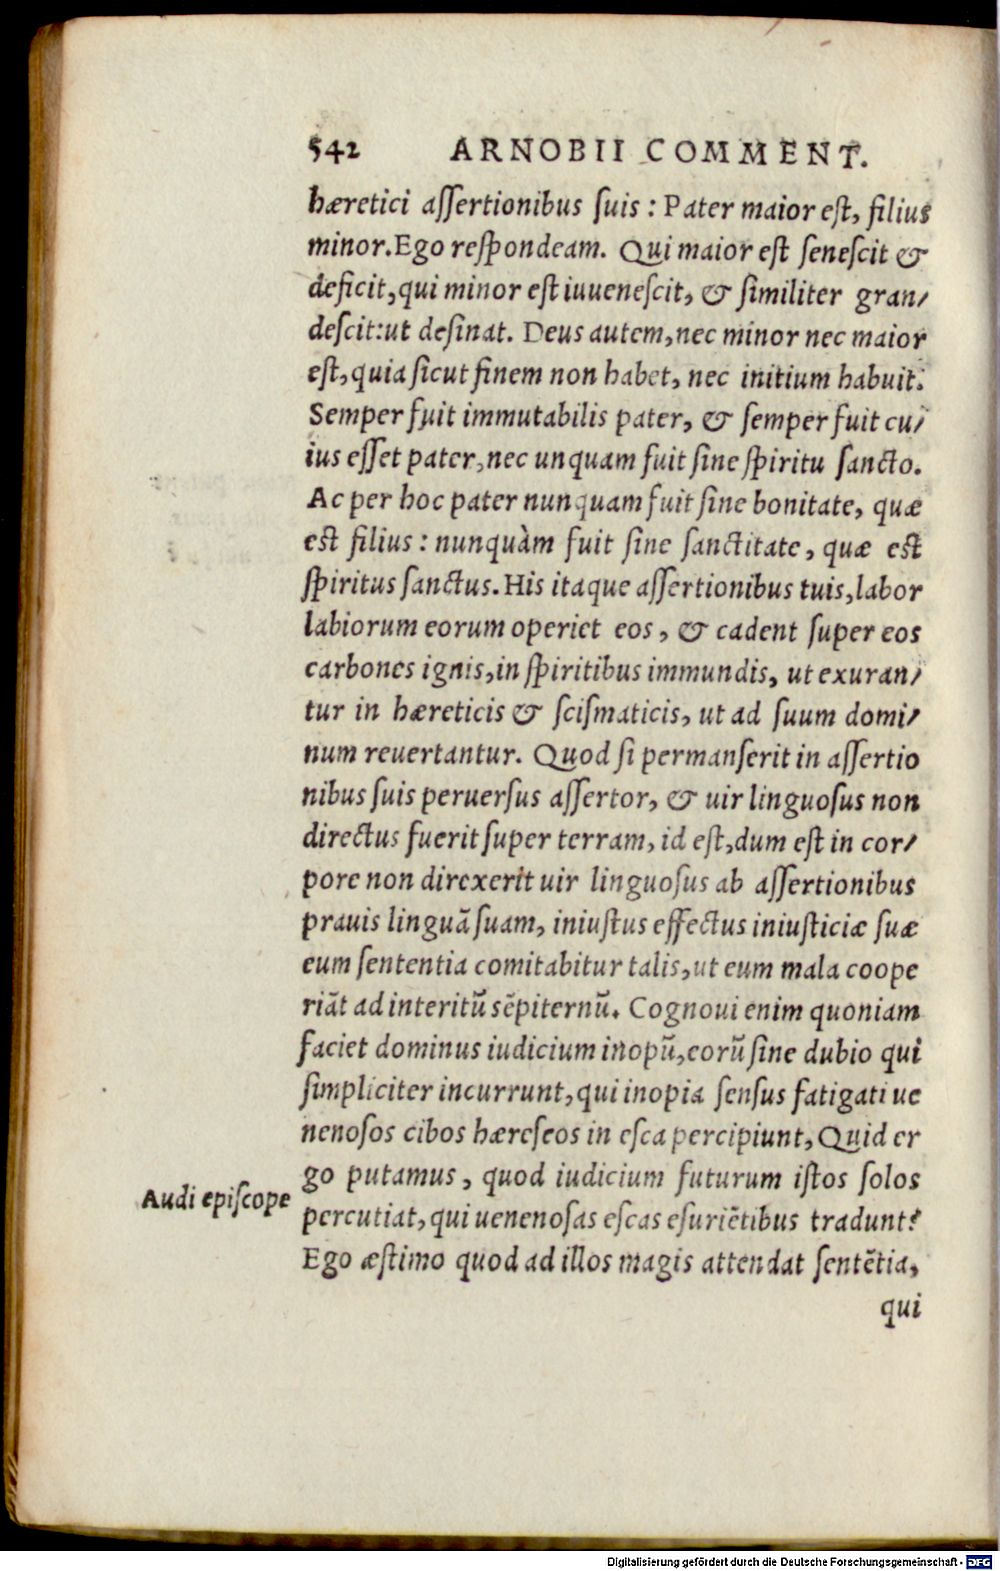 542 ARNOBII COMMENT.
hæretici aſſertionibus ſuis : Pater maior eſt, filius
minor. Ego reſpondeam. Qui maior eſt ſeneſcit &
deficit, qui minor eſt iuueneſcit, & ſimiliter gran/
deſcit: ut deſinat. Deus autem, nec minor nec maior
eſt, quia ſicut finem non habet, nec initium habuit.
Semper fuit immutabilis pater, & ſemper fuit cu/
ius eſſet pater, nec unquam fuit ſine ſpiritu ſancto.
Ac per hoc pater nunquam fuit ſine bonitate, quæ
eſt filius : nunquàm fuit ſine ſanctitate, quæ eſt
ſpiritus ſanctus. His itaque aſſertionibus tuis, labor
labiorum eorum operiet eos, & cadent ſuper eos
carbones ignis, in ſpiritibus immundis, ut exuran/
tur in hæreticis & ſciſmaticis, ut ad ſuum domi/
num reuertantur. Quod ſi permanſerit in aſſertio
nibus ſuis peruerſus aſſertor, & uir linguoſus non
directus fuerit ſuper terram, id eſt, dum eſt in cor/
pore non direxerit uir linguoſus ab aſſertionibus
prauis linguã ſuam, iniuſtus effectus iniuſticiæ ſuæ
eum ſententia comitabitur talis, ut eum mala coope
riãt ad interitũ sẽpiternũ. Cognoui enim quoniam
faciet dominus iudicium inopũ, eorũ ſine dubio qui
ſimpliciter incurrunt, qui inopia ſenſus fatigati ue
nenoſos cibos hæreſeos in eſca percipiunt, Quid er
go putamus, quod iudicium futurum iſtos ſolos
Audi epiſcope
percutiat, qui uenenoſas eſcas eſuriẽtibus tradunt?
Ego æſtimo quod ad illos magis attendat ſentẽtia,
qui
Digitalisierung gefördert durch die Deutsche Forschungsgemeinschaft - DFG